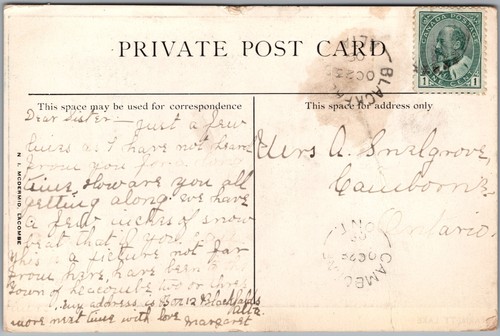 PRIVATE POST CARD
CANADA POSTAGE
1 1
BLACKFA
OC 2
This space may be used for correspondence
This space for address only
Dear Sister:- Just a few
lines as I have not hear
from you for a long
time. How are you all
getting along. We have
a few inches of snow
beat that if you can
This is a picture not far
from here, have been to the
town of Leacombe two or three
my address is Box 12 Blackfalds
Alta.
more next time with love Margaret
Mrs A. Snelgrove,
Camborne
Ontario
CAMBO
OC 2
ONT
N. L. McDERMID, LACOMBE